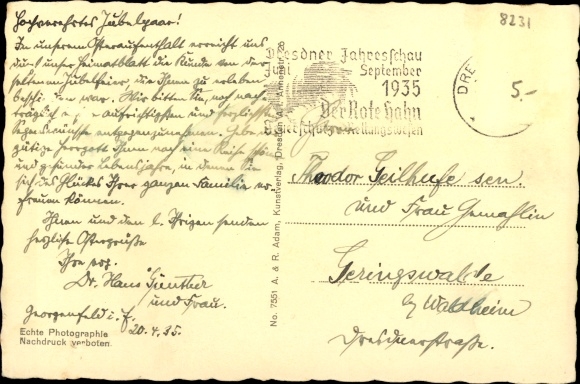 Hochverehrtes Jubelpaar!
In unserem Osteraufenthalt erreicht uns
durch unser Heimatblatt die Kunde von der
seltenen Jubelfeier die Ihnen zu erleben
war. Wir bitten Sie, noch nach-
träglich aufrichtigsten und herzlichsten
Segenswünsche entgegenzunehmen. Gebe der
gütige Herrgott Ihnen noch eine Reihe schöner
und gesunder Lebensjahre, in denen Sie
sich des Glückes Ihrer ganzen Familie er-
freuen können.
Ihnen und den l. Ihrigen senden
herzliche Ostergrüße
Ihre erg.
Dr. Hans Günther
und Frau.
Georgenfeld i. E.
20.4.35.
Echte Photographie
Nachdruck verboten
No. 7551 A. & R. Adam, Kunstverlag, Dresden
8231
Dresdner Jahresschau
Juni September
1935
Der Rote Hahn
DRE
5.-
Theodor Seilhufe sen.
und Frau Gemahlin
Geringswalde
b/ Waldheim
Dresdnerstraße.